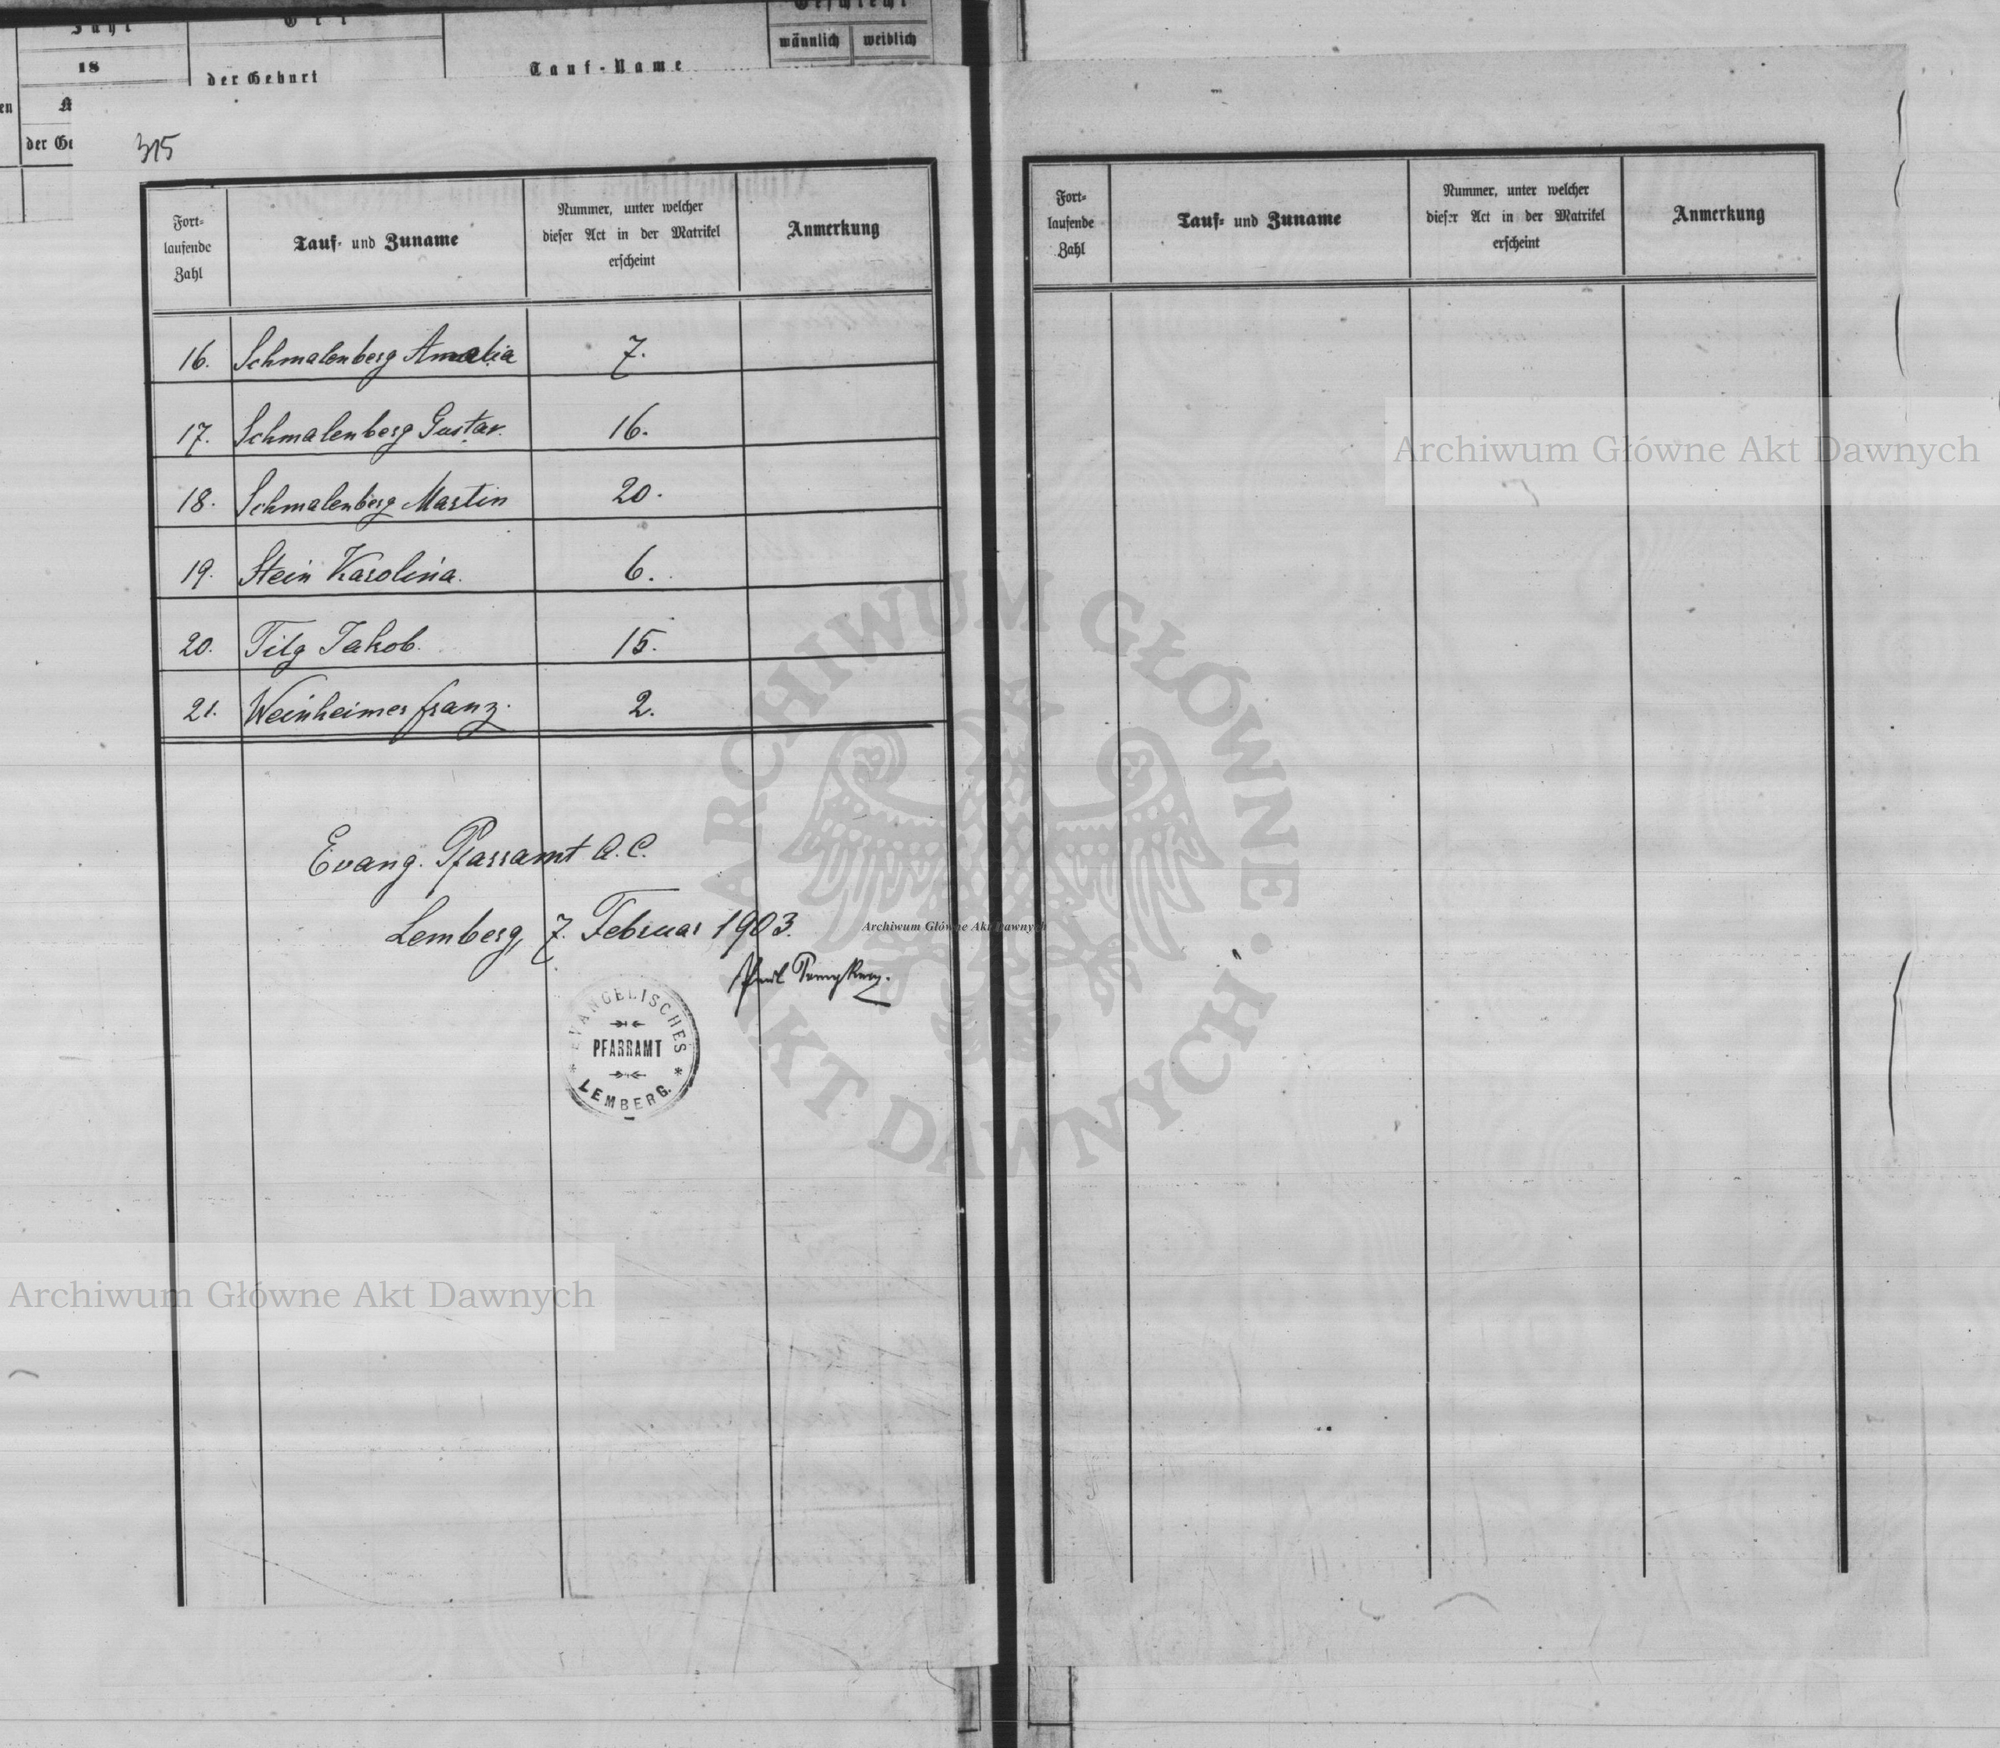 Jahr
Ort
Geschlecht
18
der Geburt
Tauf-Name
männlich
weiblich
en
der Ge
315
Fort-
laufende
Zahl
Tauf- und Zuname
Nummer, unter welcher
dieser Act in der Matrikel
erscheint
Anmerkung
16. Schmalenberg Amalia 7.
17. Schmalenberg Gustav. 16.
18. Schmalenberg Martin 20.
19. Stein Karolina. 6.
20. Tilg Jakob. 15.
21. Weinheimer Franz. 2.
Evang. Pfarramt A. C.
Lemberg, 7. Februar 1903.
Paul
* EVANGELISCHES *
PFARRAMT
LEMBERG.
Fort-
laufende
Zahl
Tauf- und Zuname
Nummer, unter welcher
dieser Act in der Matrikel
erscheint
Anmerkung
Archiwum Główne Akt Dawnych
ARCHIWUM GŁÓWNE · AKT DAWNYCH ·
Archiwum Główne Akt Dawnych
Archiwum Główne Akt Dawnych